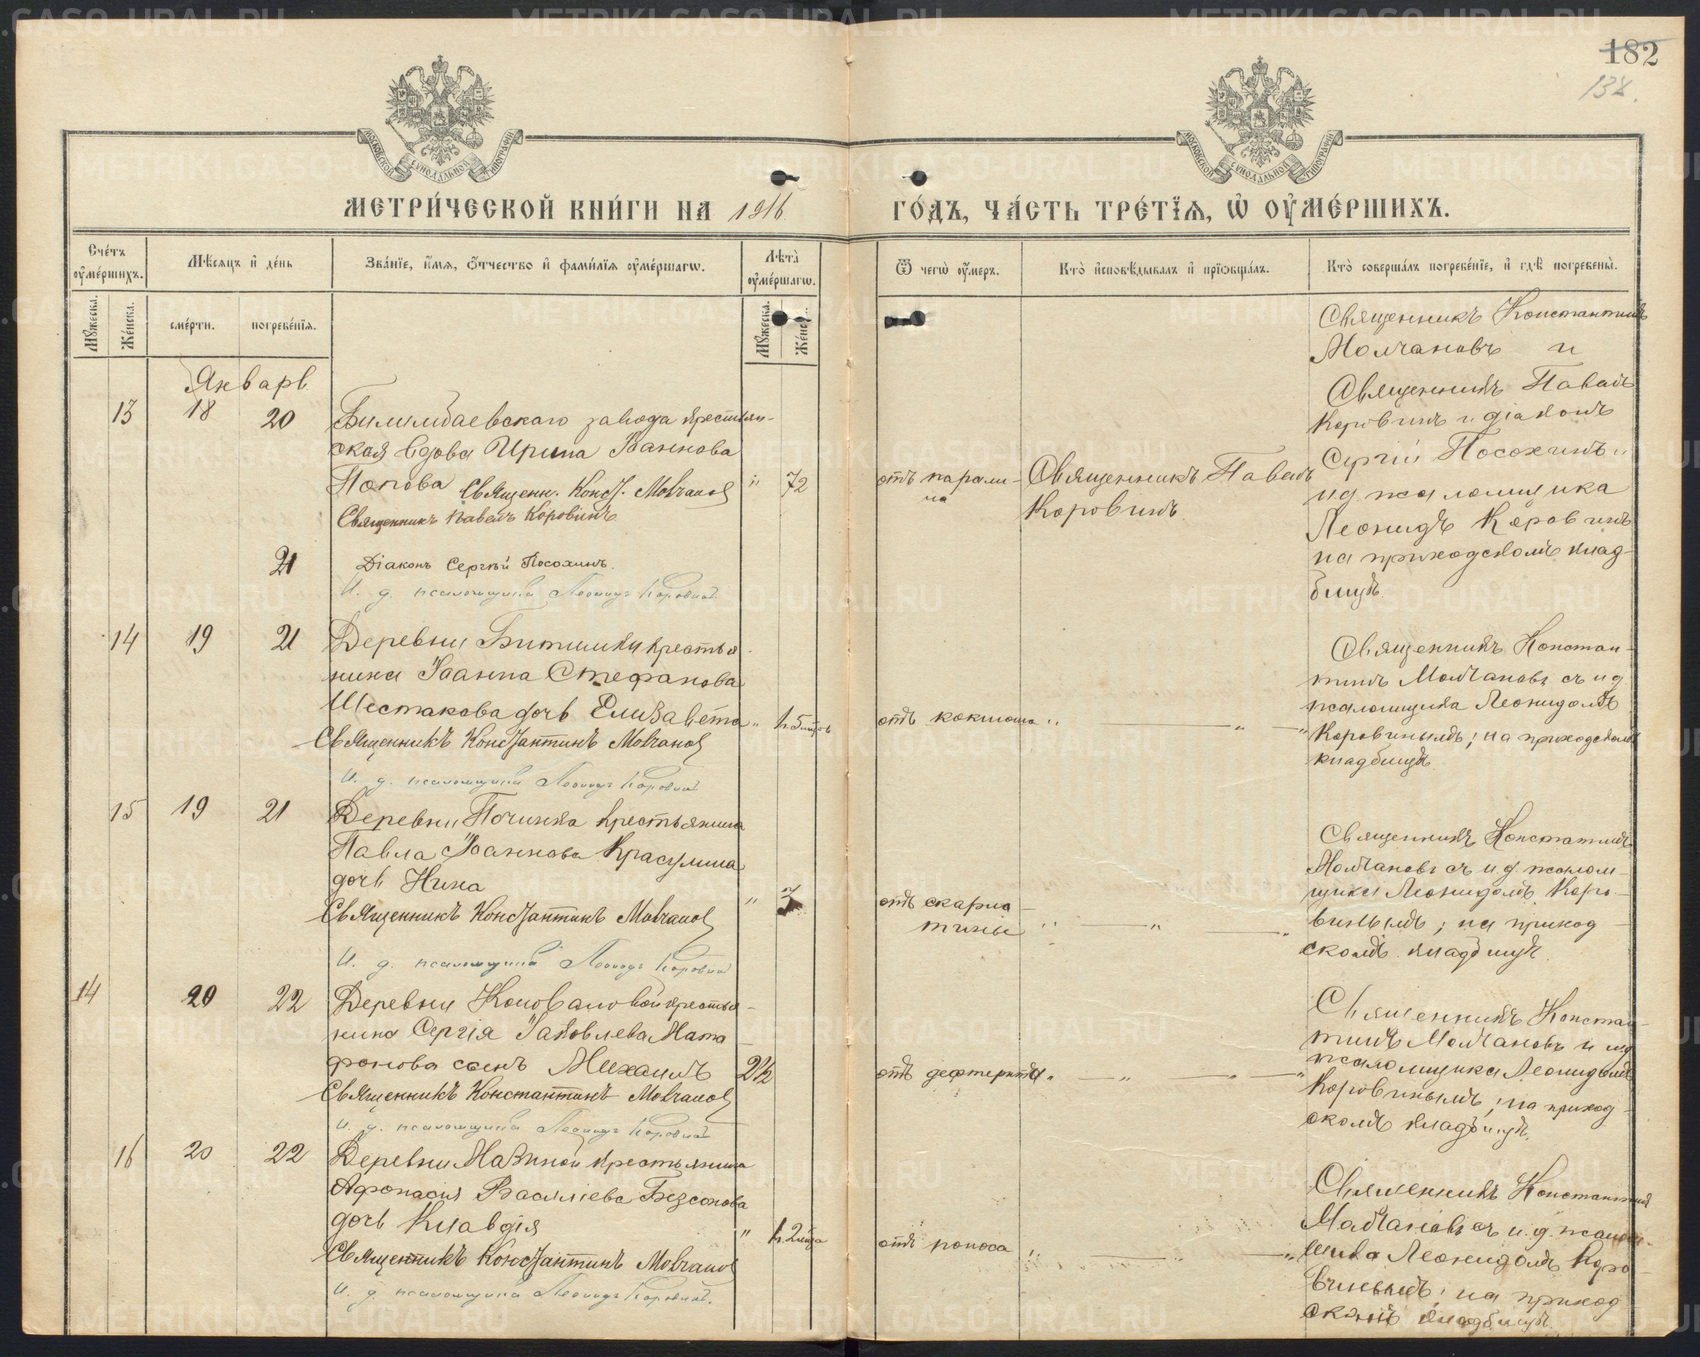 182
138.
МЕТРИ́ЧЕСКОЙ КНИ́ГИ НА 1916
ГО́ДЪ, ЧА́СТЬ ТРЕ́ТЇѦ, Ѡ҆ ОУ҆МЕ́РШИХЪ.
Сче́тъ оу҆ме́ршихъ.
Мѣ́сѧцъ и҆ де́нь
Зва́нїе, и҆́мѧ, ѻ҆́тчество и҆ фами́лїѧ оу҆ме́ршагѡ.
Лѣ́та оу҆ме́ршагѡ.
Ѿ чегѡ̀ оу҆́меръ.
Кто̀ и҆сповѣ́дывалъ и҆ прїѡбща́лъ.
Кто̀ соверша́лъ погребе́нїе, и҆ гдѣ̀ погребены̀.
Мꙋ́жеска.
Же́нска.
сме́рти.
погребе́нїѧ.
Мꙋ́жеска.
Же́нска.
Январь
13 18 20
Билимбаевскаго завода крестьян-
ская вдова Ирина Іоаннова
Попова Священн. Конст. Молчанов " 72
Священникъ Павелъ Коровинъ
21 Діаконъ Сергѣй Посохинъ.
И. д. псаломщика Леонидъ Коровинъ
отъ парали-
ча
Священникъ Павелъ
Коровинъ
Священникъ Константинъ
Молчановъ и
Священникъ Павелъ
Коровинъ и діаконъ
Сергій Посохинъ и
и д псаломщика
Леонидъ Коровинъ
на приходскомъ клад-
бищѣ.
14 19 21
Деревни Битимки крестья-
нина Іоанна Стефанова
Шестакова дочь Елизавета " 1. 5 мцовъ
Священникъ Константинъ Молчановъ
И. д. псаломщика Леонидъ Коровинъ
отъ коклюша " — " — "
Священникъ Констан-
тинъ Молчановъ съ и д
псаломщика Леонидомъ
Коровинымъ; на приходскомъ
кладбищѣ
15 19 21
Деревни Починка крестьянина
Павла Іоаннова Красулина
дочь Нина
" 7
Священникъ Константинъ Молчановъ
И. д. псаломщика Леонидъ Коровинъ
отъ скарла-
тины " — " — "
Священникъ Константинъ
Молчановъ съ и д псалом-
щика Леонидомъ Коро-
винымъ; на приход-
скомъ кладбищѣ.
14 20 22
Деревни Коноваловой крестья-
нина Сергія Іаковлева Мата-
фонова сынъ Михаилъ 2½
Священникъ Константинъ Молчановъ
И. д. псаломщика Леонидъ Коровинъ
отъ дефтерита " — " — " — "
Священникъ Констан-
тинъ Молчановъ и ид
псаломщика Леонидомъ
Коровинымъ; на приход-
скомъ кладбищѣ.
16 20 22
Деревни Мазиной крестьянина
Афонасія Василіева Безсонова
дочь Клавдія " 1. 2 мца
Священникъ Константинъ Молчановъ
И. д. псаломщика Леонидъ Коровинъ.
отъ поноса " — "
Священникъ Константинъ
Молчановъ съ и. д. псалом-
щика Леонидомъ Коро-
винымъ; на приход
скомъ кладбищѣ.
METRIKI.GASO-URAL.RU